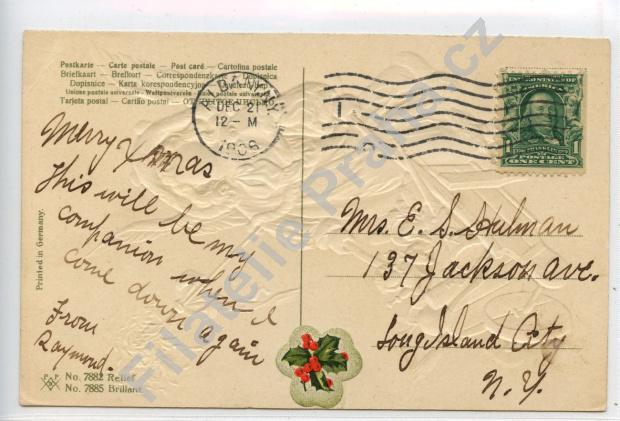 Postkarte – Carte postale – Post card – Cartolina postale
Briefkaart – Brefkort – Correspondenzkarte – Dopisnica
Dopisnice – Karta korespondencyjna –
Unione postale universale – Weltpostverein – Union postale universelle
Tarjeta postal – Cartão postal –
ALBANY, N.Y.
DEC 21
12-M
1906
2
POSTAGE
1 ONE CENT 1
Merry Xmas
This will be my
companion when I
come down again
From
Raymond.
Mrs. E. S. Hulman
137 Jackson ave.
Long Island City
N. Y.
Printed in Germany.
No. 7882 Relief
No. 7885 Brillant
Filatelie Praha.cz